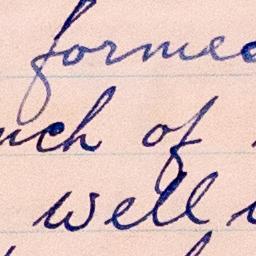 forme
uch of
well